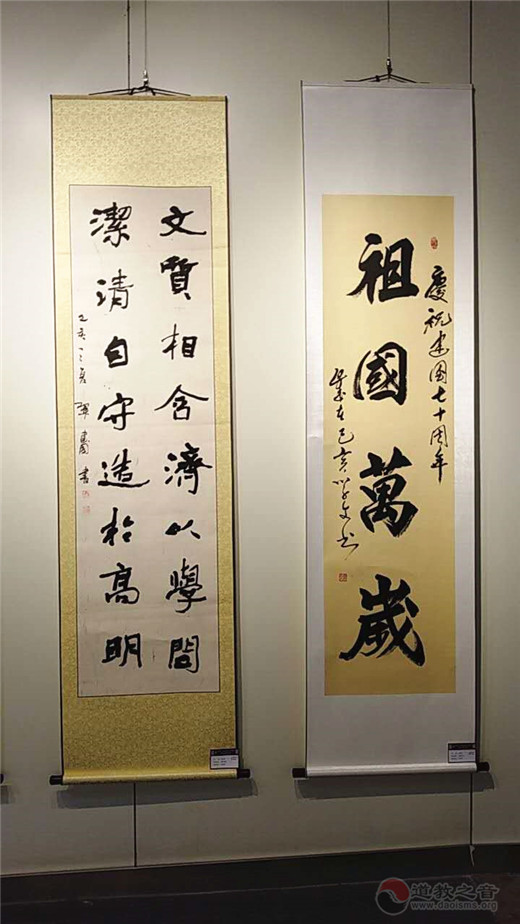 慶祝建國七十周年
祖國萬歲
歲在己亥
文質相含濟以學問
潔清自守造於高明
書
道教之音
www.daoisms.org